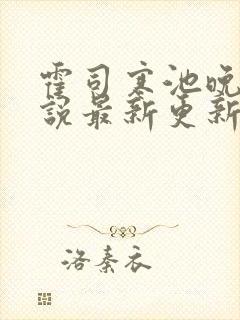 霍司寒池晚
说最新更新
洛秦衣